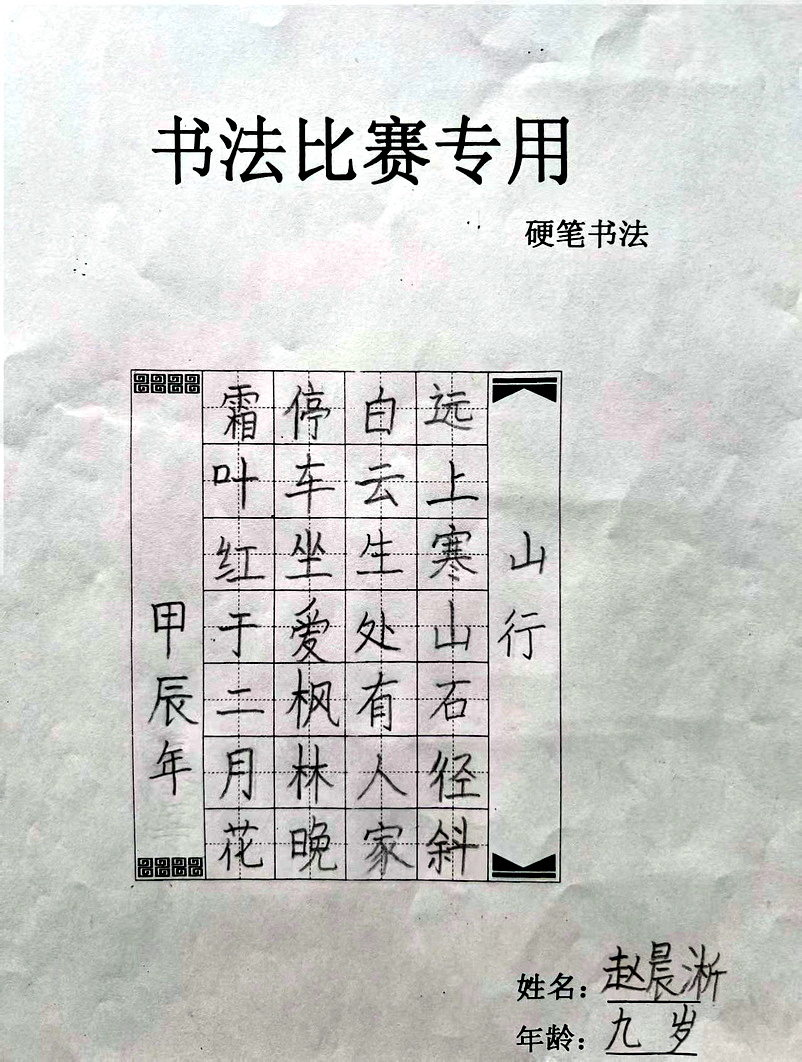 书法比赛专用
硬笔书法
山行
远上寒山石径斜
白云生处有人家
停车坐爱枫林晚
霜叶红于二月花
甲辰年
姓名：赵晨淅
年龄：九岁